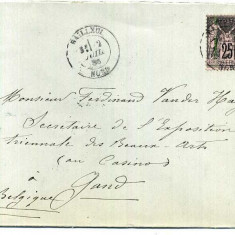 HALLUIN
2
JUIL
NORD
25
Monsieur Ferdinand Vander Hae
Secrétaire de l'Exposition
triennale des Beaux-Arts
(au Casino)
à Gand
Belgique